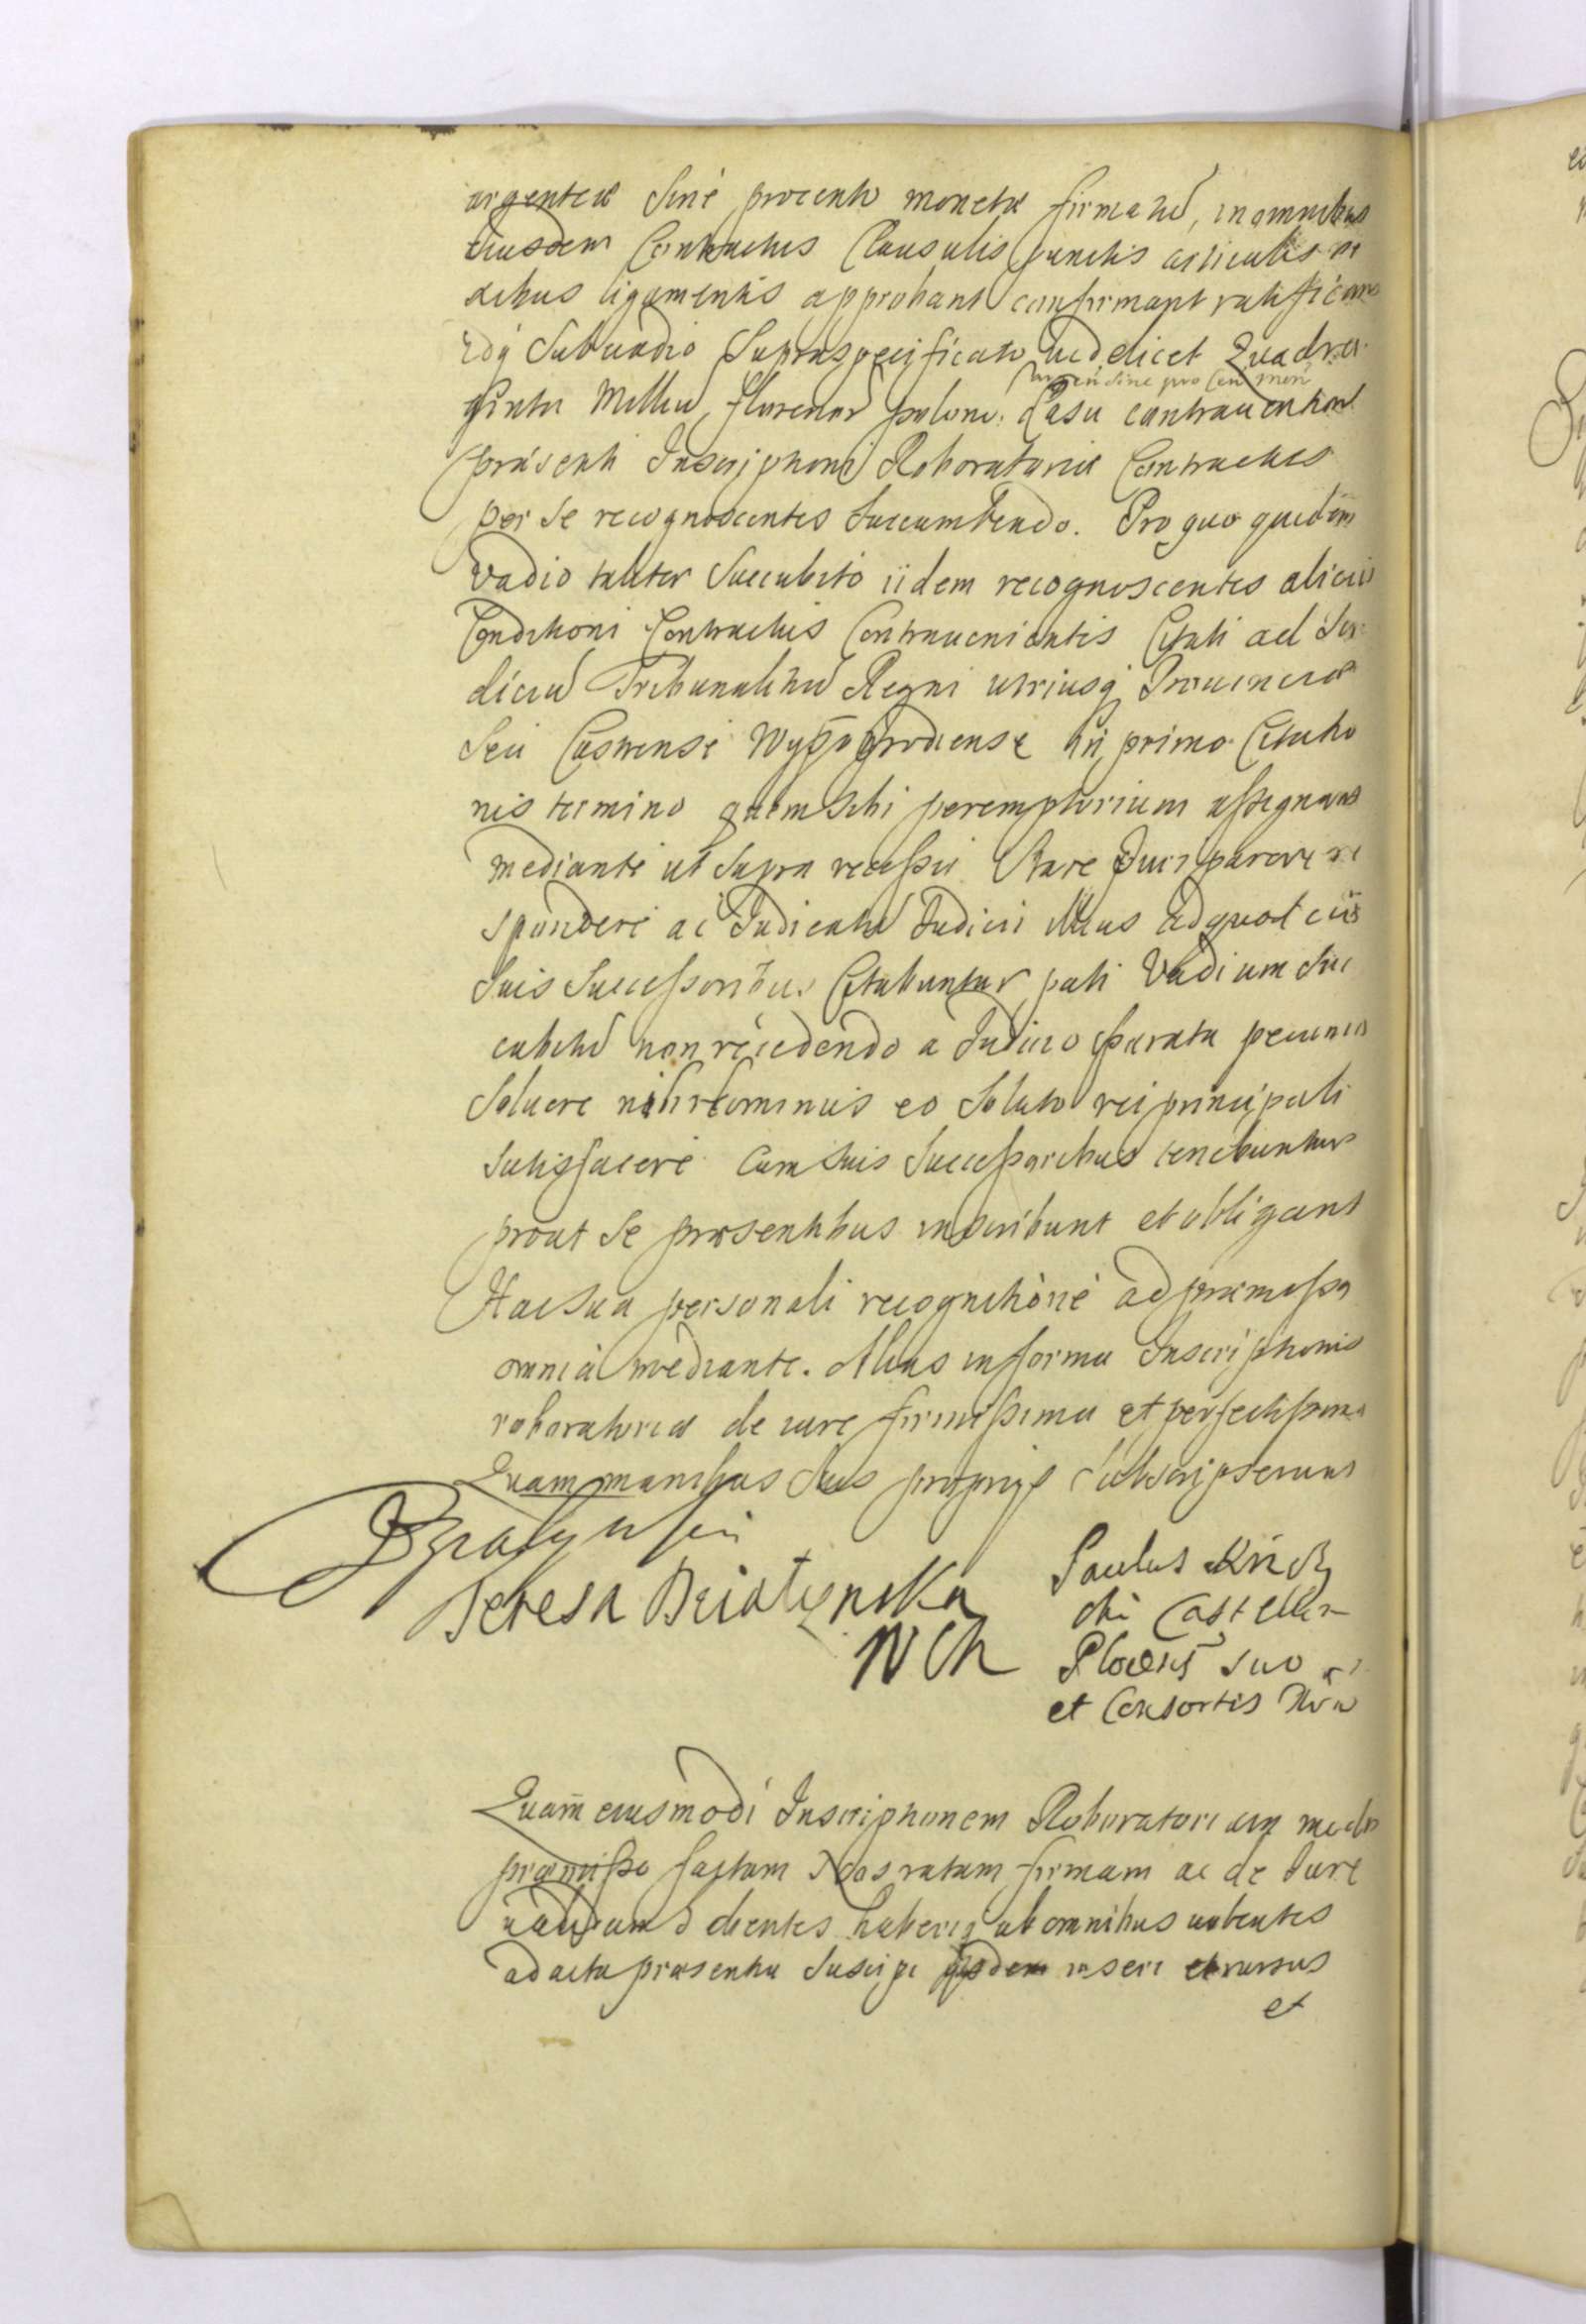 argenteæ sine procento monetæ firmatũ, in omnibus
eiusdem Contractus Clausulis punctis articulis ne
xibus ligamentis approbant confirmant ratificant
Idq̃ Sub vadio Supraspecificato videlicet Quadra
argen sine pro Cen mon
ginta Milliũ florenor polon. Casu contravention
præsenti Inscriptioni Roboratoriæ Contractus
per se recognoscentes succumbendo. Pro quo quidem
vadio taliter Succubito iidem recognoscentes alicui
Conditioni Contractus Contravenientis Citati ad Iu
diciũ Tribunalitiũ Regni utriusq̃ Provinciæ
Seu Castrense Wyszogrodiense in primo Citatio
nis termino quem sibi peremptorium assignant
mediante ut supra recessu Stare Iuri parere re
spondere ac Iudicatũ Iudicii illius ad quod cũ
Suis Successoribus Citabuntur pati Vadium Suc
cubitũ non recedendo a Iudicio parata pecunia
Soluere nihilominus eo Soluto rei principali
Satisfacere cum suis Successoribus tenebuntur
prout se præsentibus inscribunt et obligant
Hac sua personali recognitione ad præmissa
omnia mediante. Alias in forma Inscriptionis
roboratoriæ de iure firmissima et perfectissima
Quam manibus suis proprijs Subscripserunt
Teresa Działynska
W Ch
Paulus
Castella
Plocens suo
et Consortis Noie
Quam eiusmodi Inscriptionem Roboratoriam modo
præmisso factam Nos ratam firmam ac de Iure
validam dicentes haberiq̃ ab omnibus volentes
ad acta præsentia Suscipi inseri
et